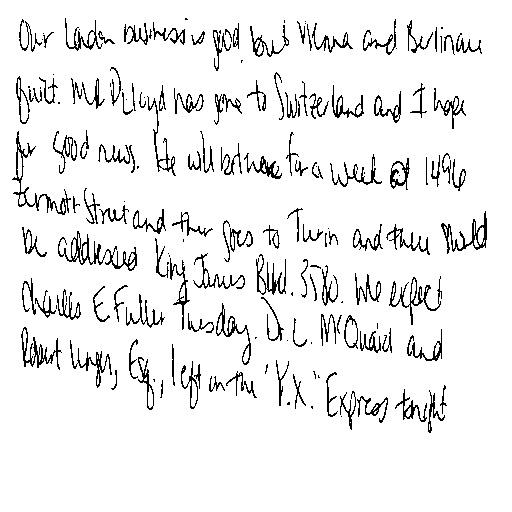 Our London business is good, but Vienna and Berlin are
quiet. Mr. D. Lloyd has gone to Switzerland and I hope
for good news. He will be there for a week at 1496
Zermott Street and then goes to Turin and there should
be addressed King James Blvd. 3580. We expect
Charles E Fuller Tuesday. Dr. L. McQuaid and
Robert Unger, Esq., left on the "Y.X." Express tonight